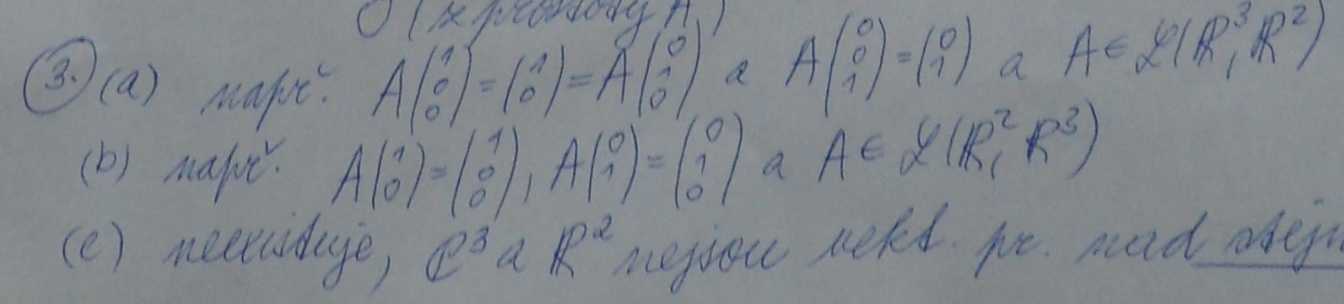 0 (z prostoty A)
3. (a) např. A(1 0 0) = (1 0) = A(0 1 0) a A(0 0 1) = (0 1) a A ∈ ℒ(ℝ³, ℝ²)
(b) např. A(1 0) = (1 0 0), A(0 1) = (0 1 0) a A ∈ ℒ(ℝ², ℝ³)
(c) neexistuje, ℂ³ a ℝ² nejsou vekt. pr. nad